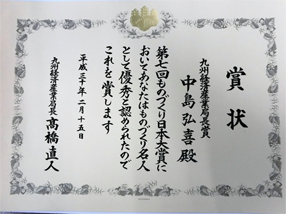 賞状
九州経済産業局長賞
中島弘喜殿
第七回ものづくり日本大賞に
おいてあなたはものづくり名人
として優秀と認められたので
これを賞します
平成三十年二月十五日
九州経済産業局長 髙橋直人